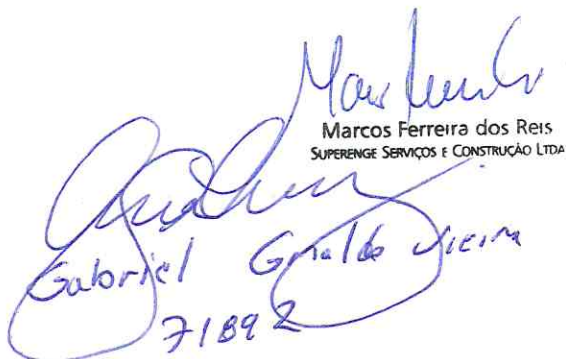 Marcos Ferreira dos Reis
SUPERENGE SERVIÇOS E CONSTRUÇÃO LTDA
Gabriel Vieira
71892